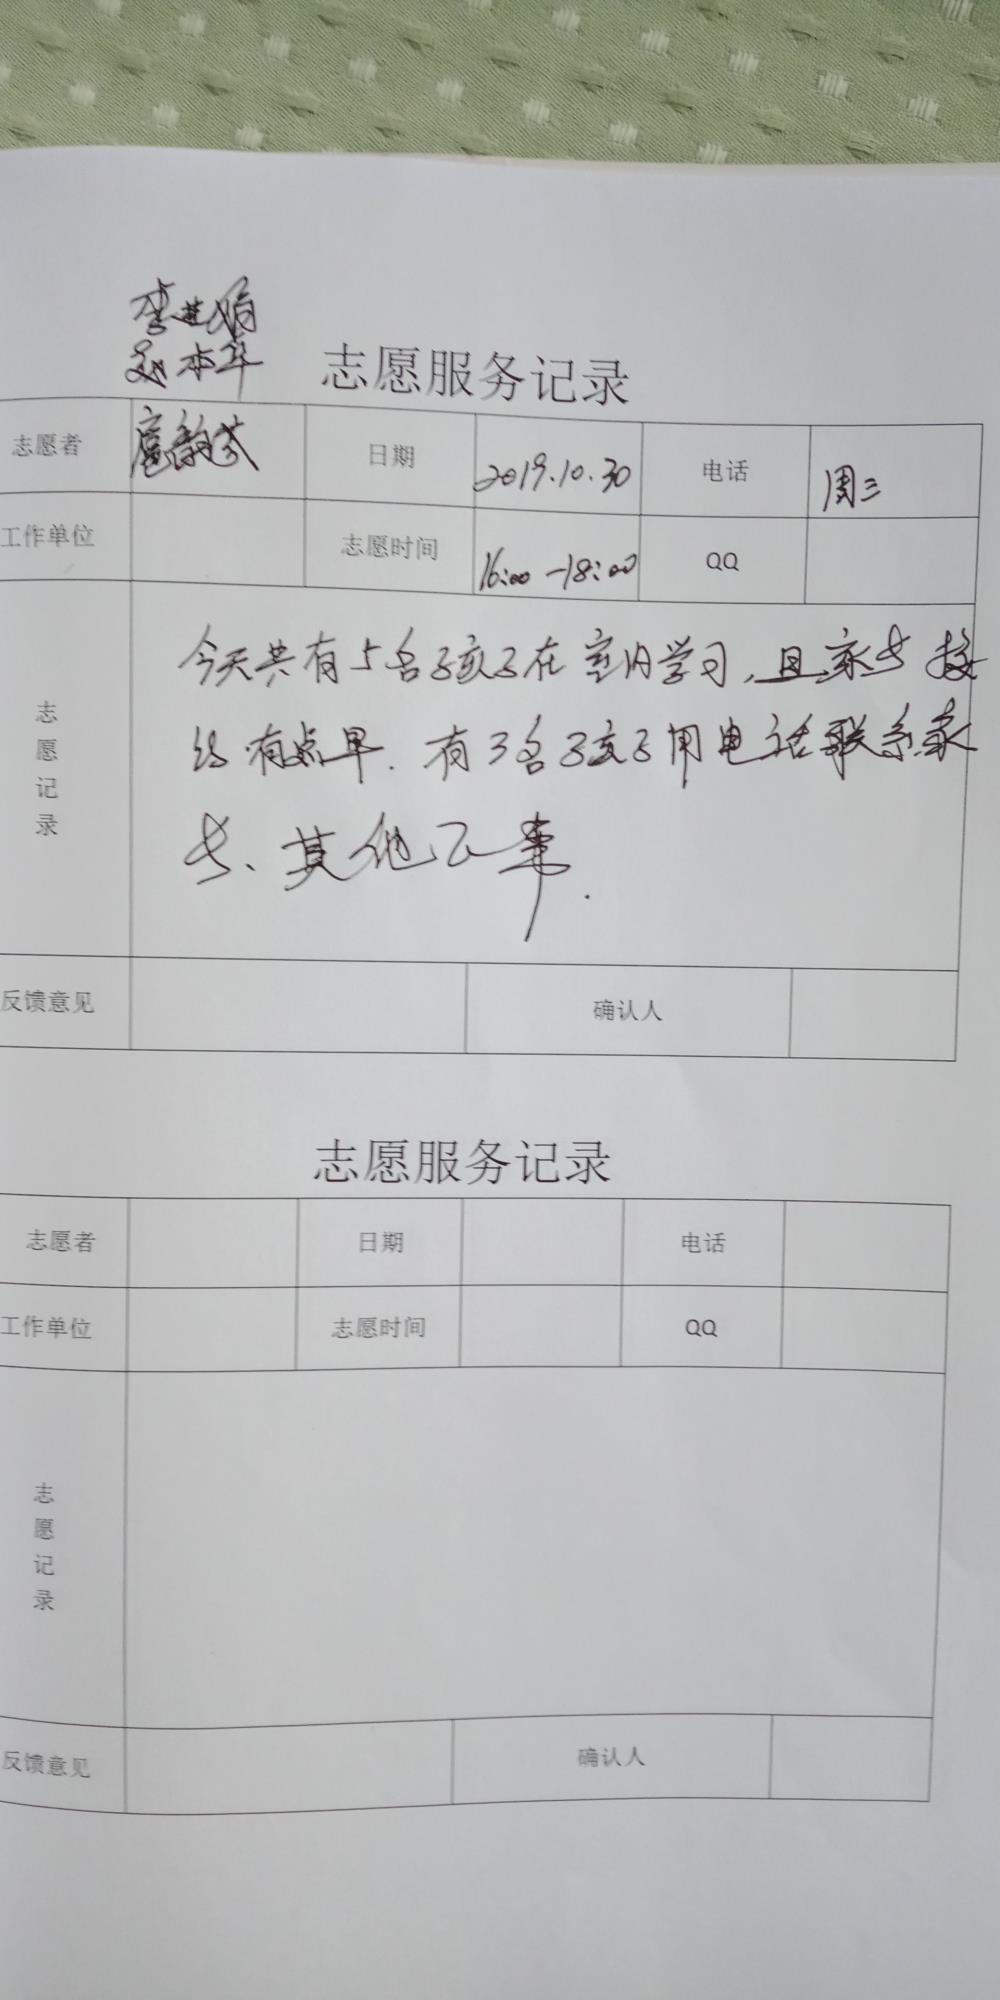 李进娟
赵本华
志愿服务记录
志愿者 扈韵芬 日期 2019.10.30 电话 周三
工作单位 志愿时间 16:00-18:00 QQ
志愿记录
今天共有5名孩子在室内学习,且家长接
的有点早.有3名孩子用电话联系家
长、其他正常.
反馈意见 确认人
志愿服务记录
志愿者 日期 电话
工作单位 志愿时间 QQ
志愿记录
反馈意见 确认人